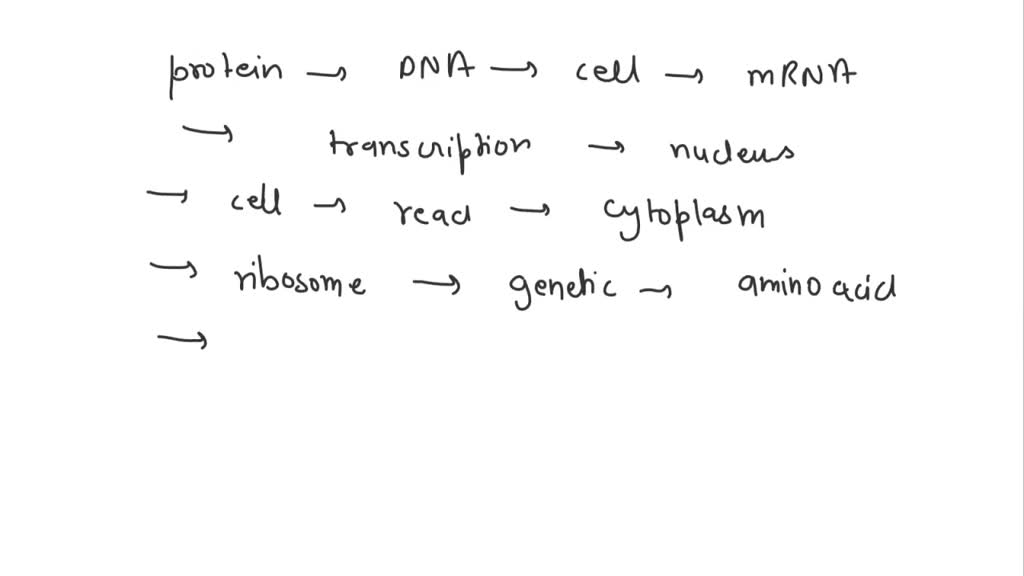 protein → DNA → cell → mRNA
→ transcription → nucleus
→ cell → read → cytoplasm
→ ribosome → genetic → amino acid
→